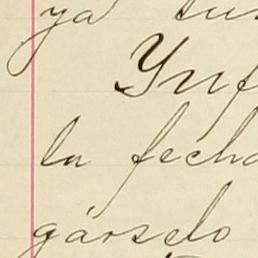 ya
Ynf
la fecha
gárselo